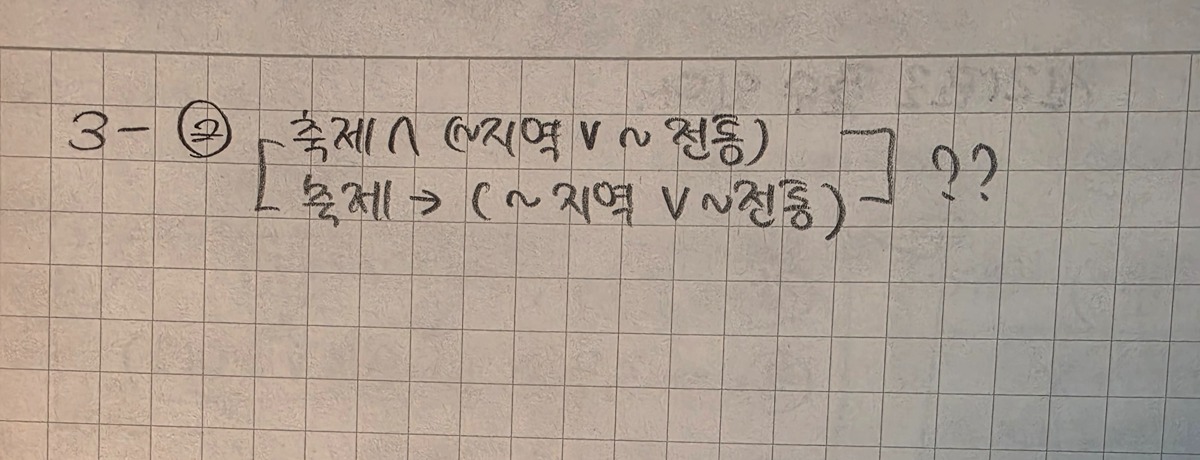 3- ② 축제 ∧ (~지역 ∨ ~전통)
축제 → (~지역 ∨ ~전통) ??